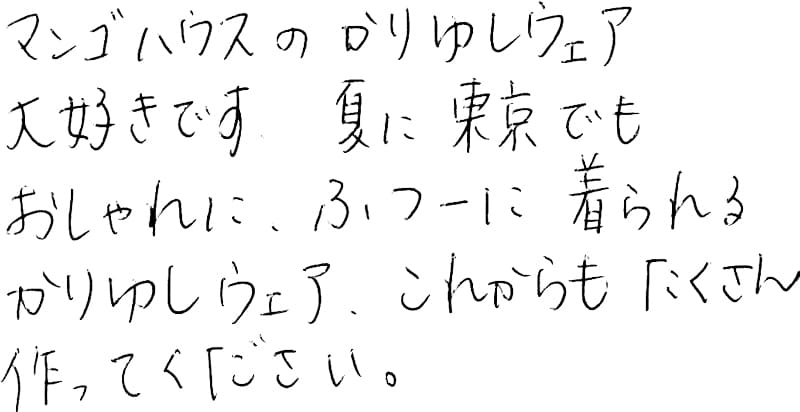 マンゴハウスのかりゆしウェア
大好きです 夏に東京でも
おしゃれに、ふつーに着られる
かりゆしウェア、これからもたくさん
作ってください。